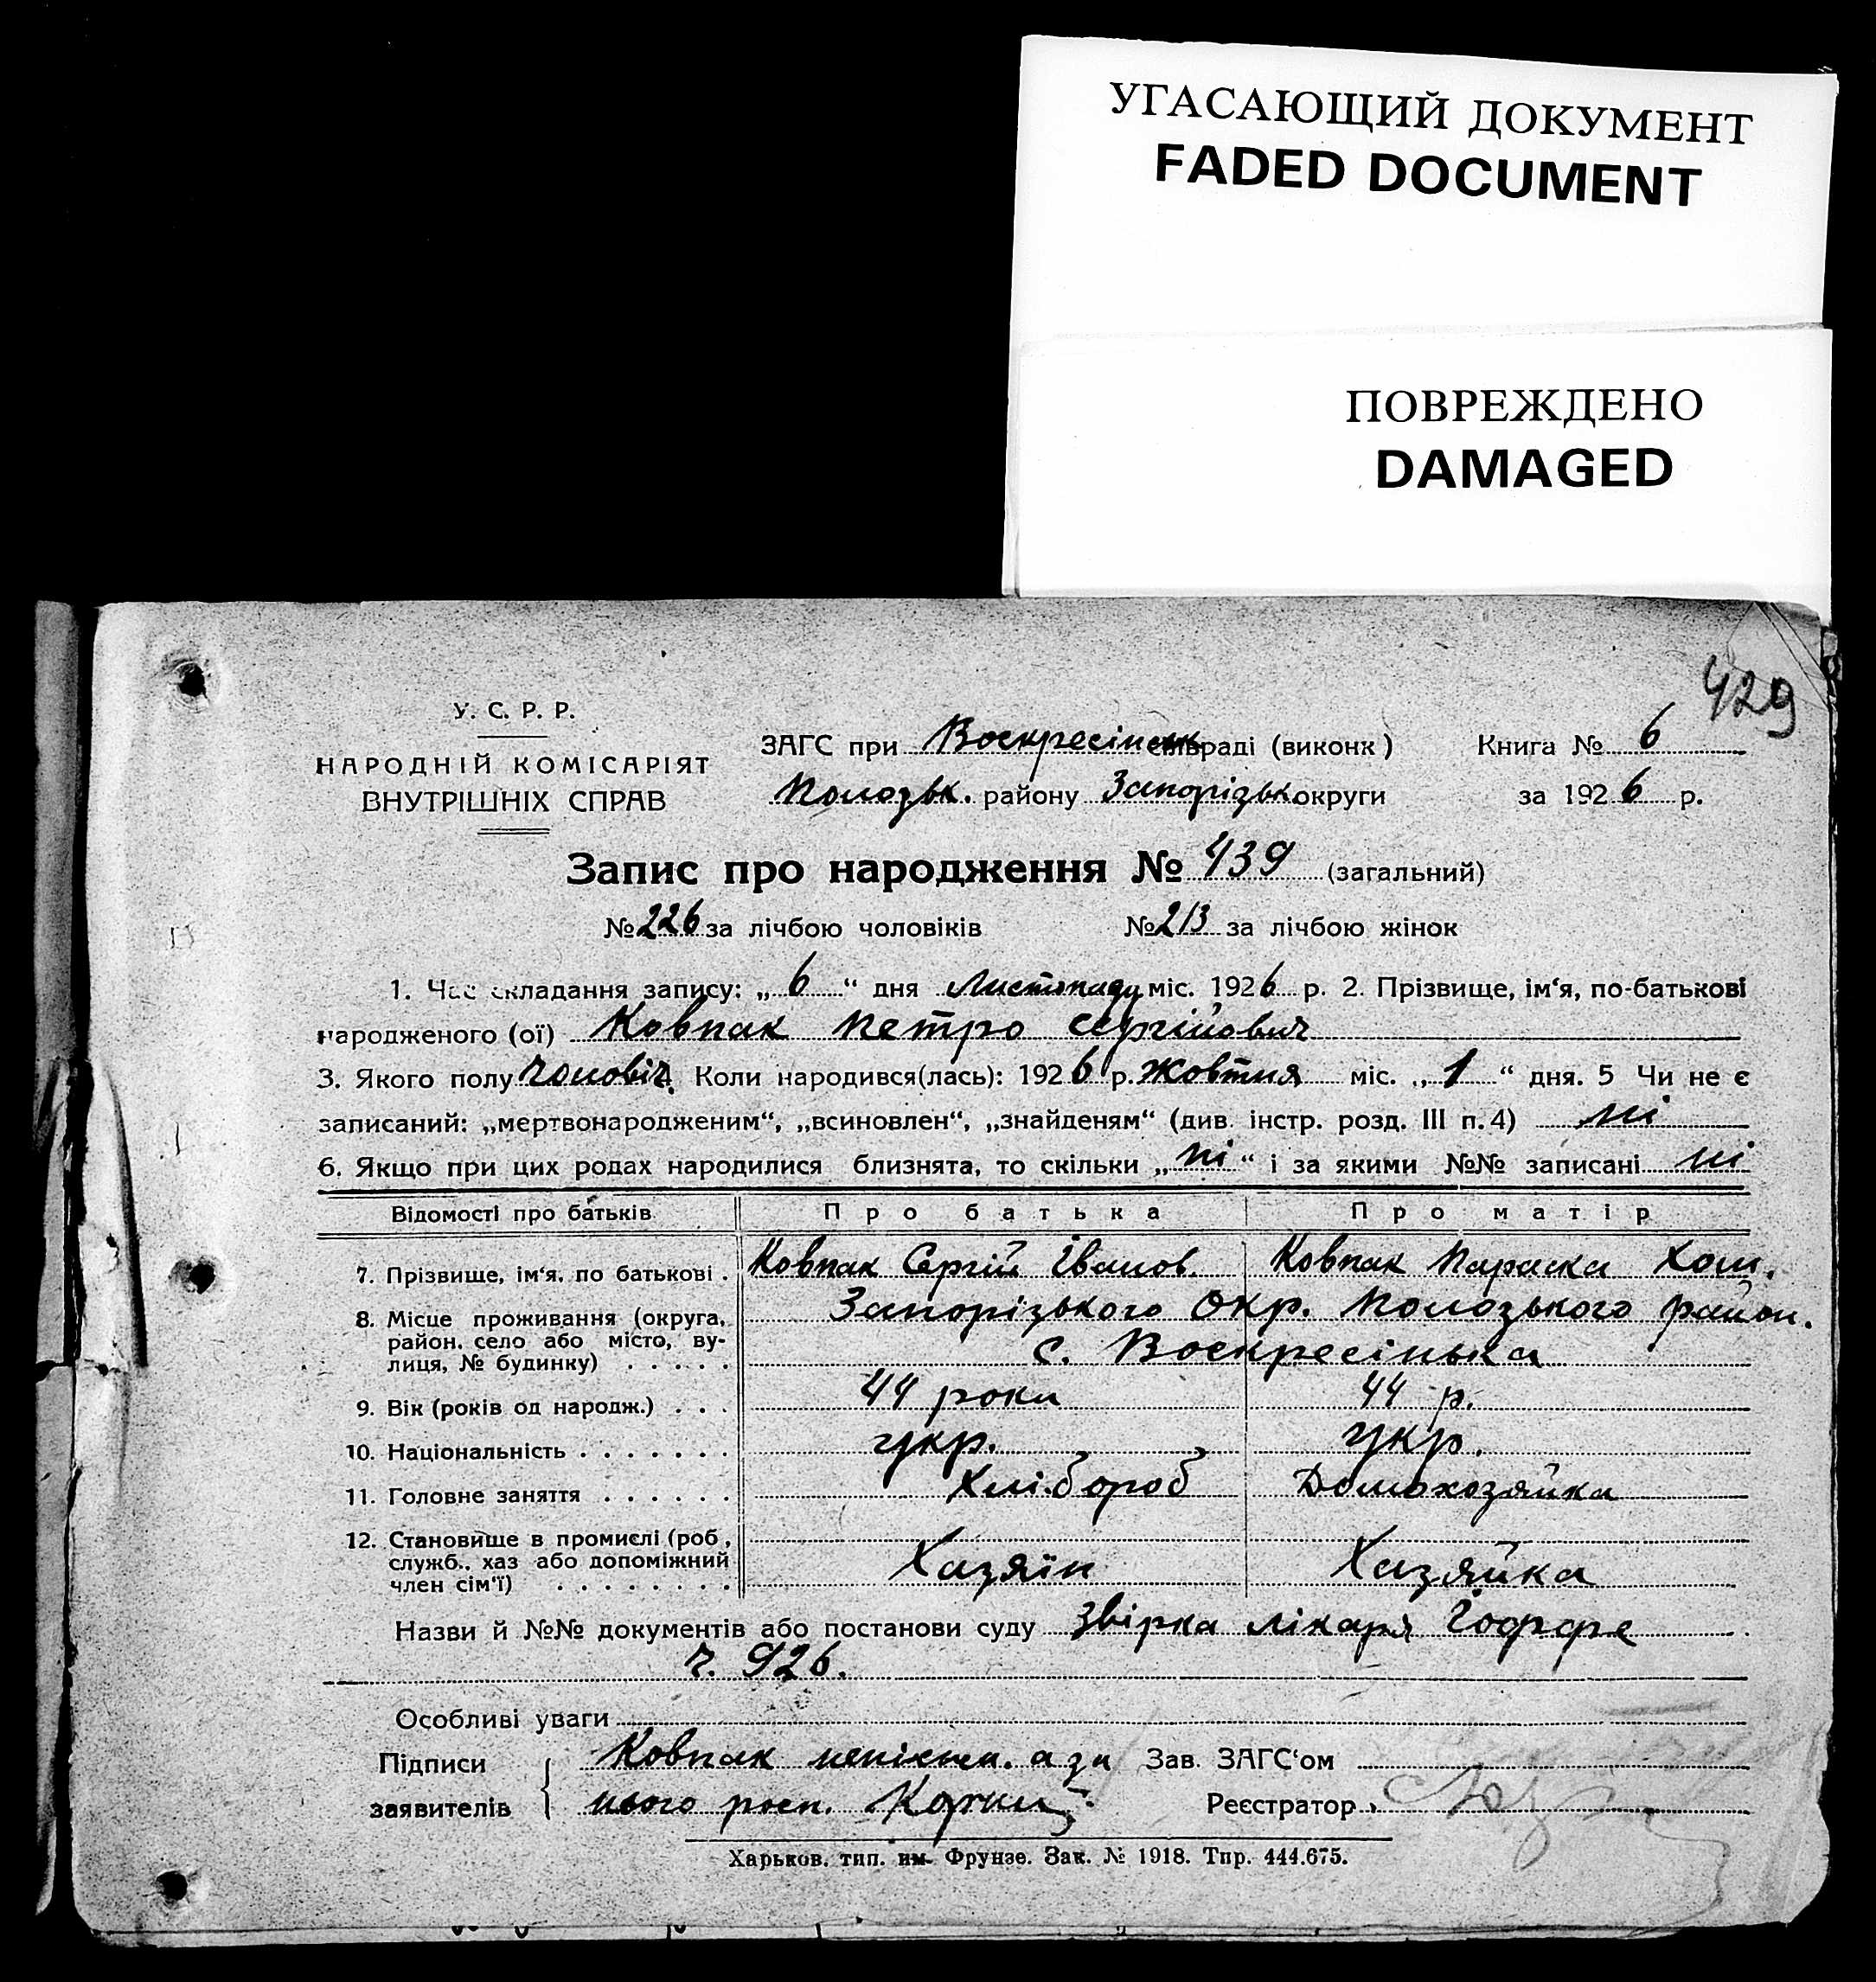 УГАСАЮЩИЙ ДОКУМЕНТ
FADED DOCUMENT
ПОВРЕЖДЕНО
DAMAGED
429
У. С. Р. Р.
НАРОДНІЙ КОМІСАРІЯТ
ВНУТРІШНІХ СПРАВ
ЗАГС при Воскресінськ раді (виконк)
Книга № 6
Полозьк. району Запорізьк округи
за 1926 р.
Запис про народження № 439 (загальний)
№ 226 за лічбою чоловіків № 213 за лічбою жінок
1. Час складання запису: „6“ дня Листопаду міс. 1926 р. 2. Прізвище, ім‘я, по-батькові
народженого (ої) Ковпак Петро Сергійович
3. Якого полу чоловіч. Коли народився(лась): 1926 р. Жовтня міс. „1“ дня. 5 Чи не є
записаний: „мертвонародженим“, „всиновлен“, „знайденям“ (див. інстр. розд. III п. 4) ні
6. Якщо при цих родах народилися близнята, то скільки „ні“ і за якими №№ записані ні
Відомості про батьків Про батька Про матір
7. Прізвище, ім‘я, по батькові . Ковпак Сергій Іванов. Ковпак Параска Хом.
8. Місце проживання (округа, Запорізького Окр. Полозького район.
район. село або місто, ву-
лиця, № будинку) . . . . . с. Воскресінька
9. Вік (років од народж.) . . . 44 роки 44 р.
10. Національність . . . . . . . укр. укр.
11. Головне заняття . . . . . . Хлібороб Домохозяйка
12. Становище в промислі (роб,
служб., хаз або допоміжний Хазяїн Хазяйка
член сім‘ї) . . . . . . . .
Назви й №№ документів або постанови суду Звірка лікаря Гоффе
ч. 926.
Особливі уваги
Підписи Ковпак неписьм. а за Зав. ЗАГС‘ом
заявителів нього росп. Реєстратор
Харьков. тип. им. Фрунзе. Зак. № 1918. Тпр. 444.675.